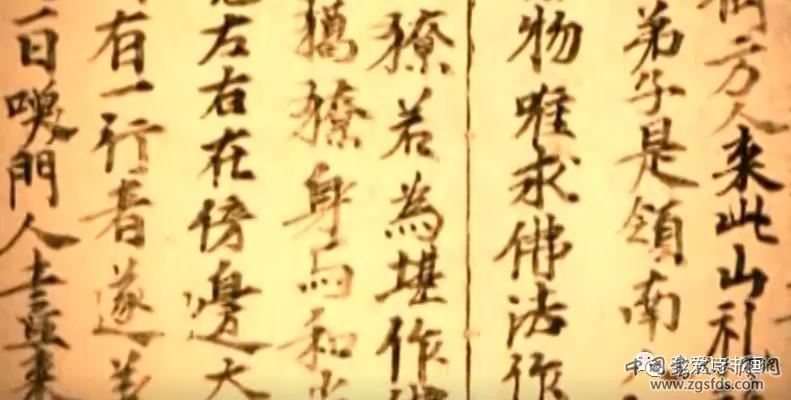 方人来此山礼
弟子是領南
物唯求佛法作
獠若為堪作
獦獠身与和
左右在傍邊大
有一行者遂差
日喚門人盡来
我爱诗书画
www.zgsfds.com